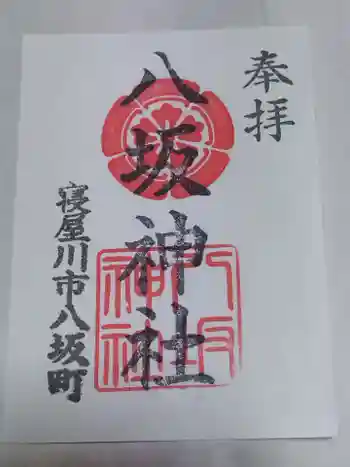 奉拝
八坂神社
八坂
神社
寝屋川市八坂町